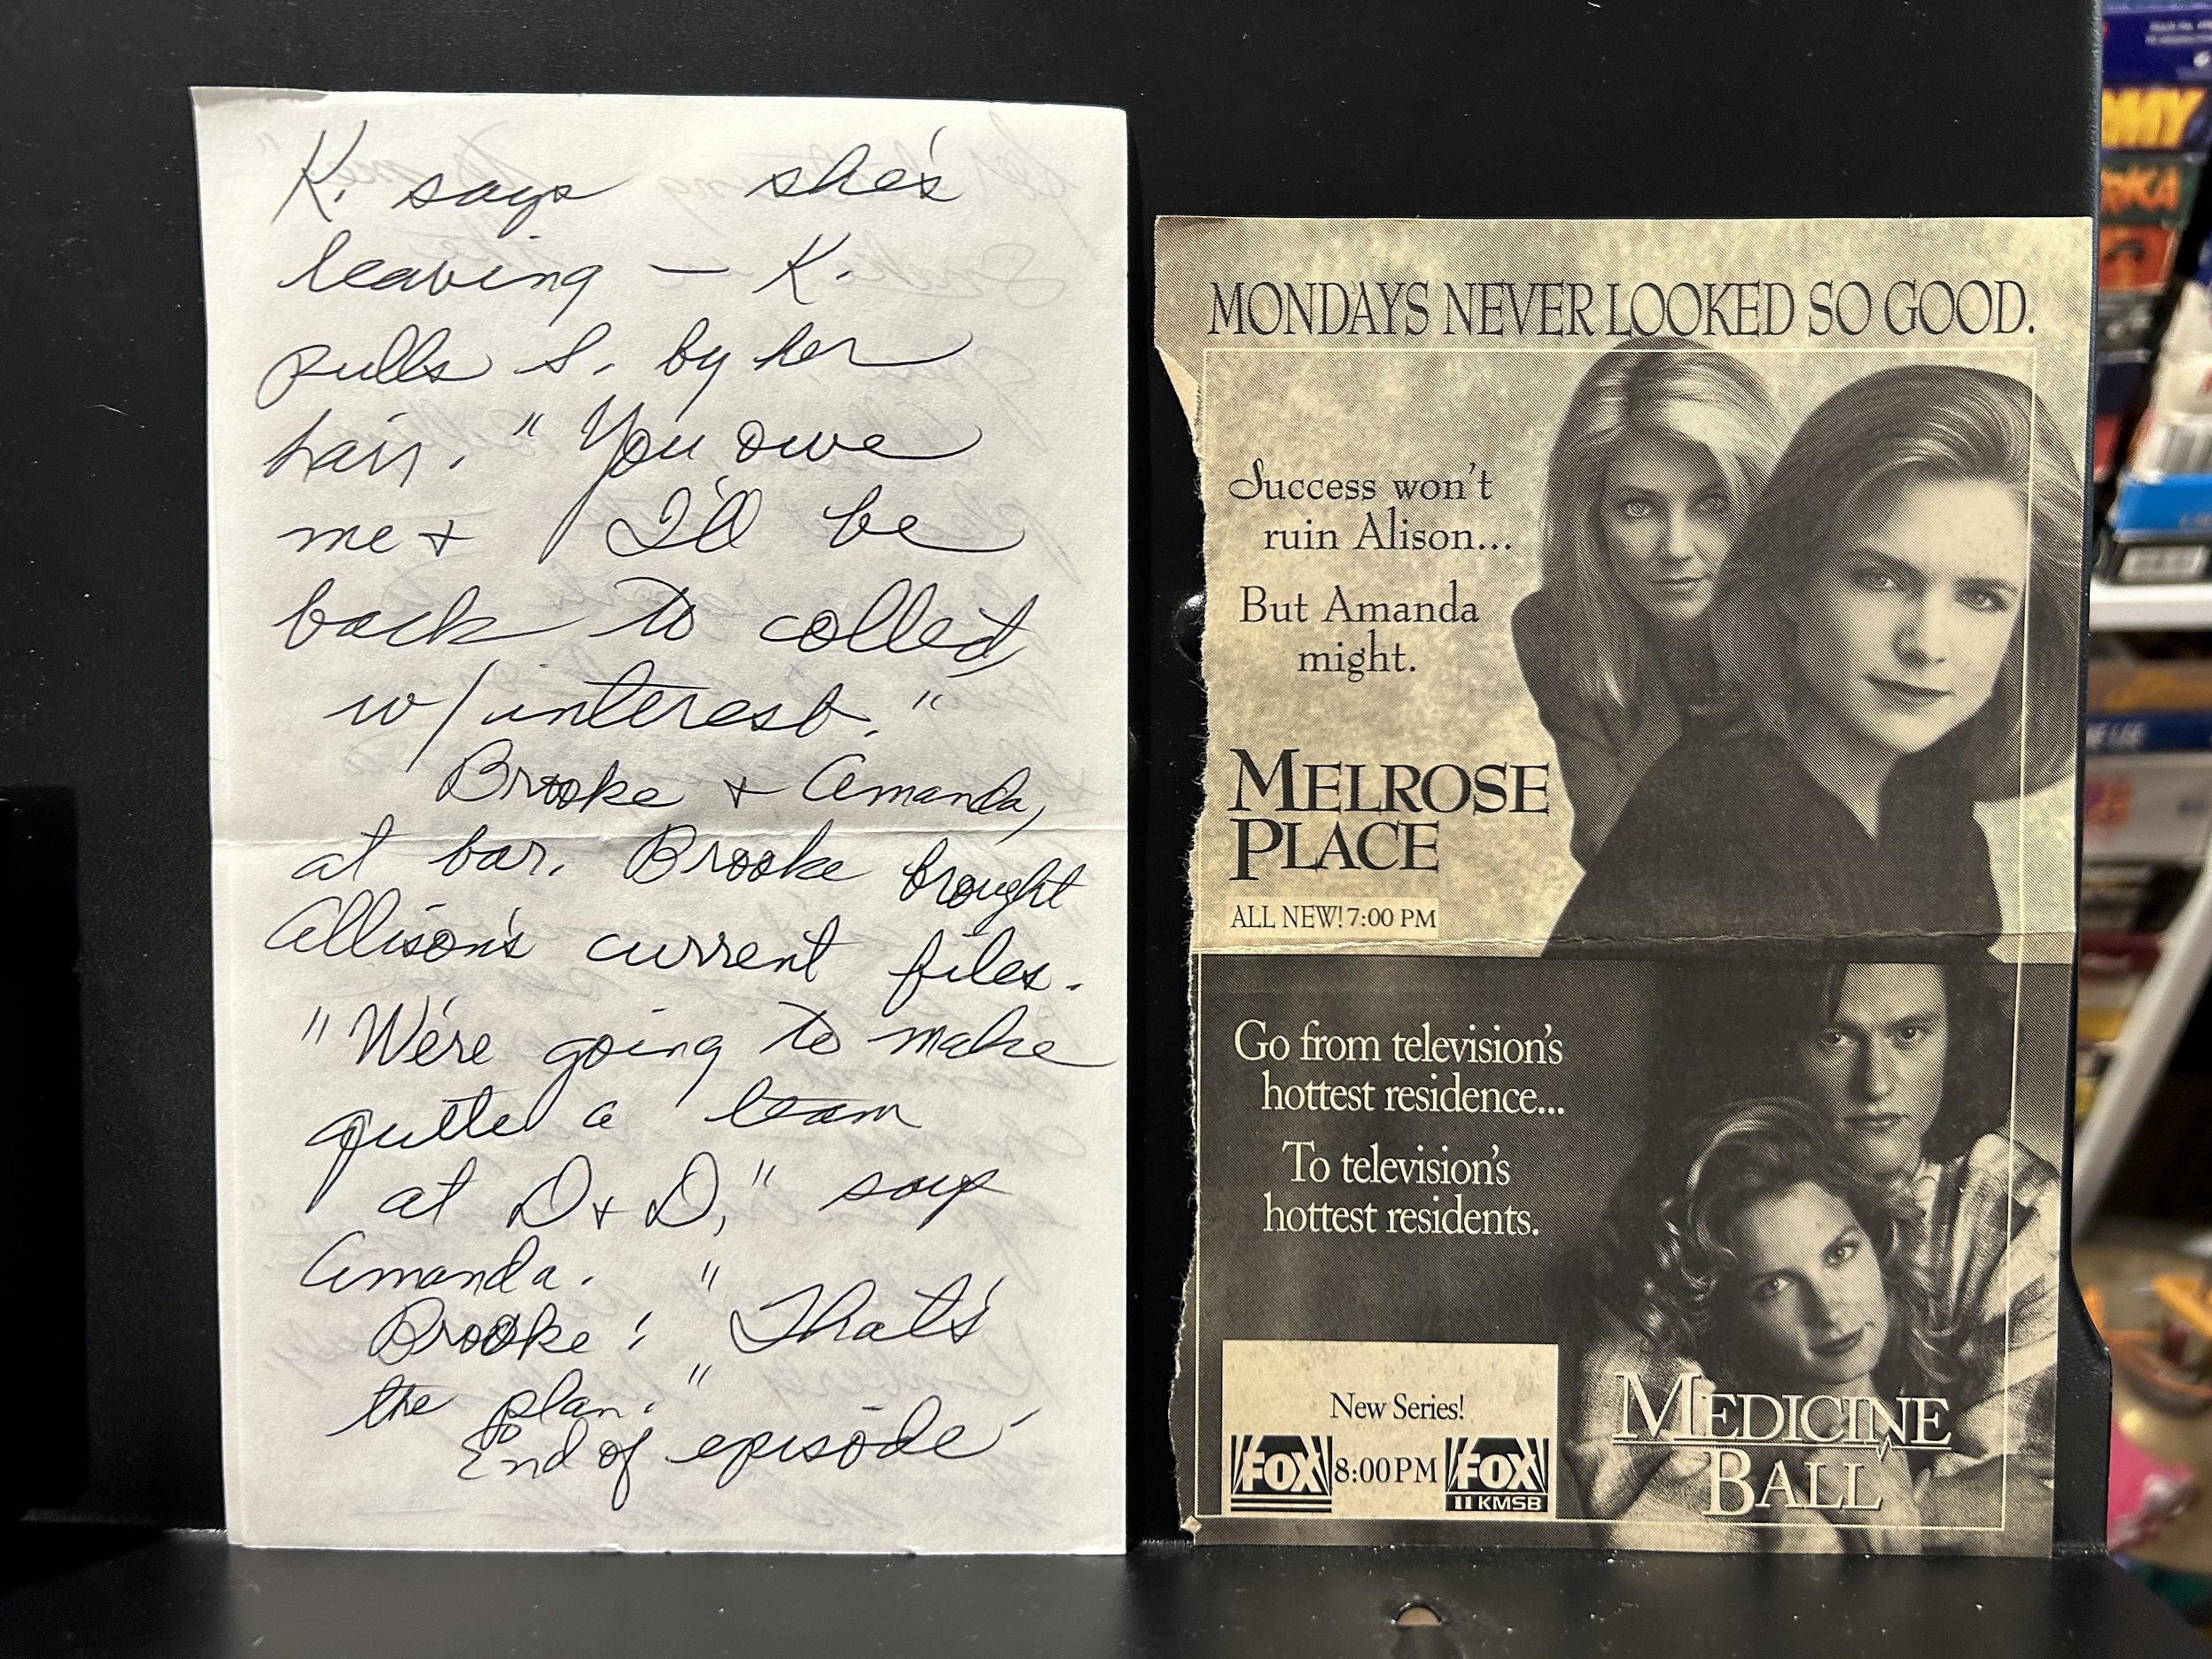 K. says she's
leaving — K.
pulls S. by her
hair. "You owe
me + I'll be
back to collect,
w/interest."
Brooke + Amanda,
at bar. Brooke brought
Allison's current files.
"We're going to make
quite a team
at D+D," says
Amanda.
Brooke: "That's
the plan."
End of episode
MONDAYS NEVER LOOKED SO GOOD.
Success won't
ruin Alison...
But Amanda
might.
MELROSE
PLACE
ALL NEW! 7:00 PM
Go from television's
hottest residence...
To television's
hottest residents.
New Series!
FOX 8:00PM FOX
11 KMSB
MEDICINE
BALL